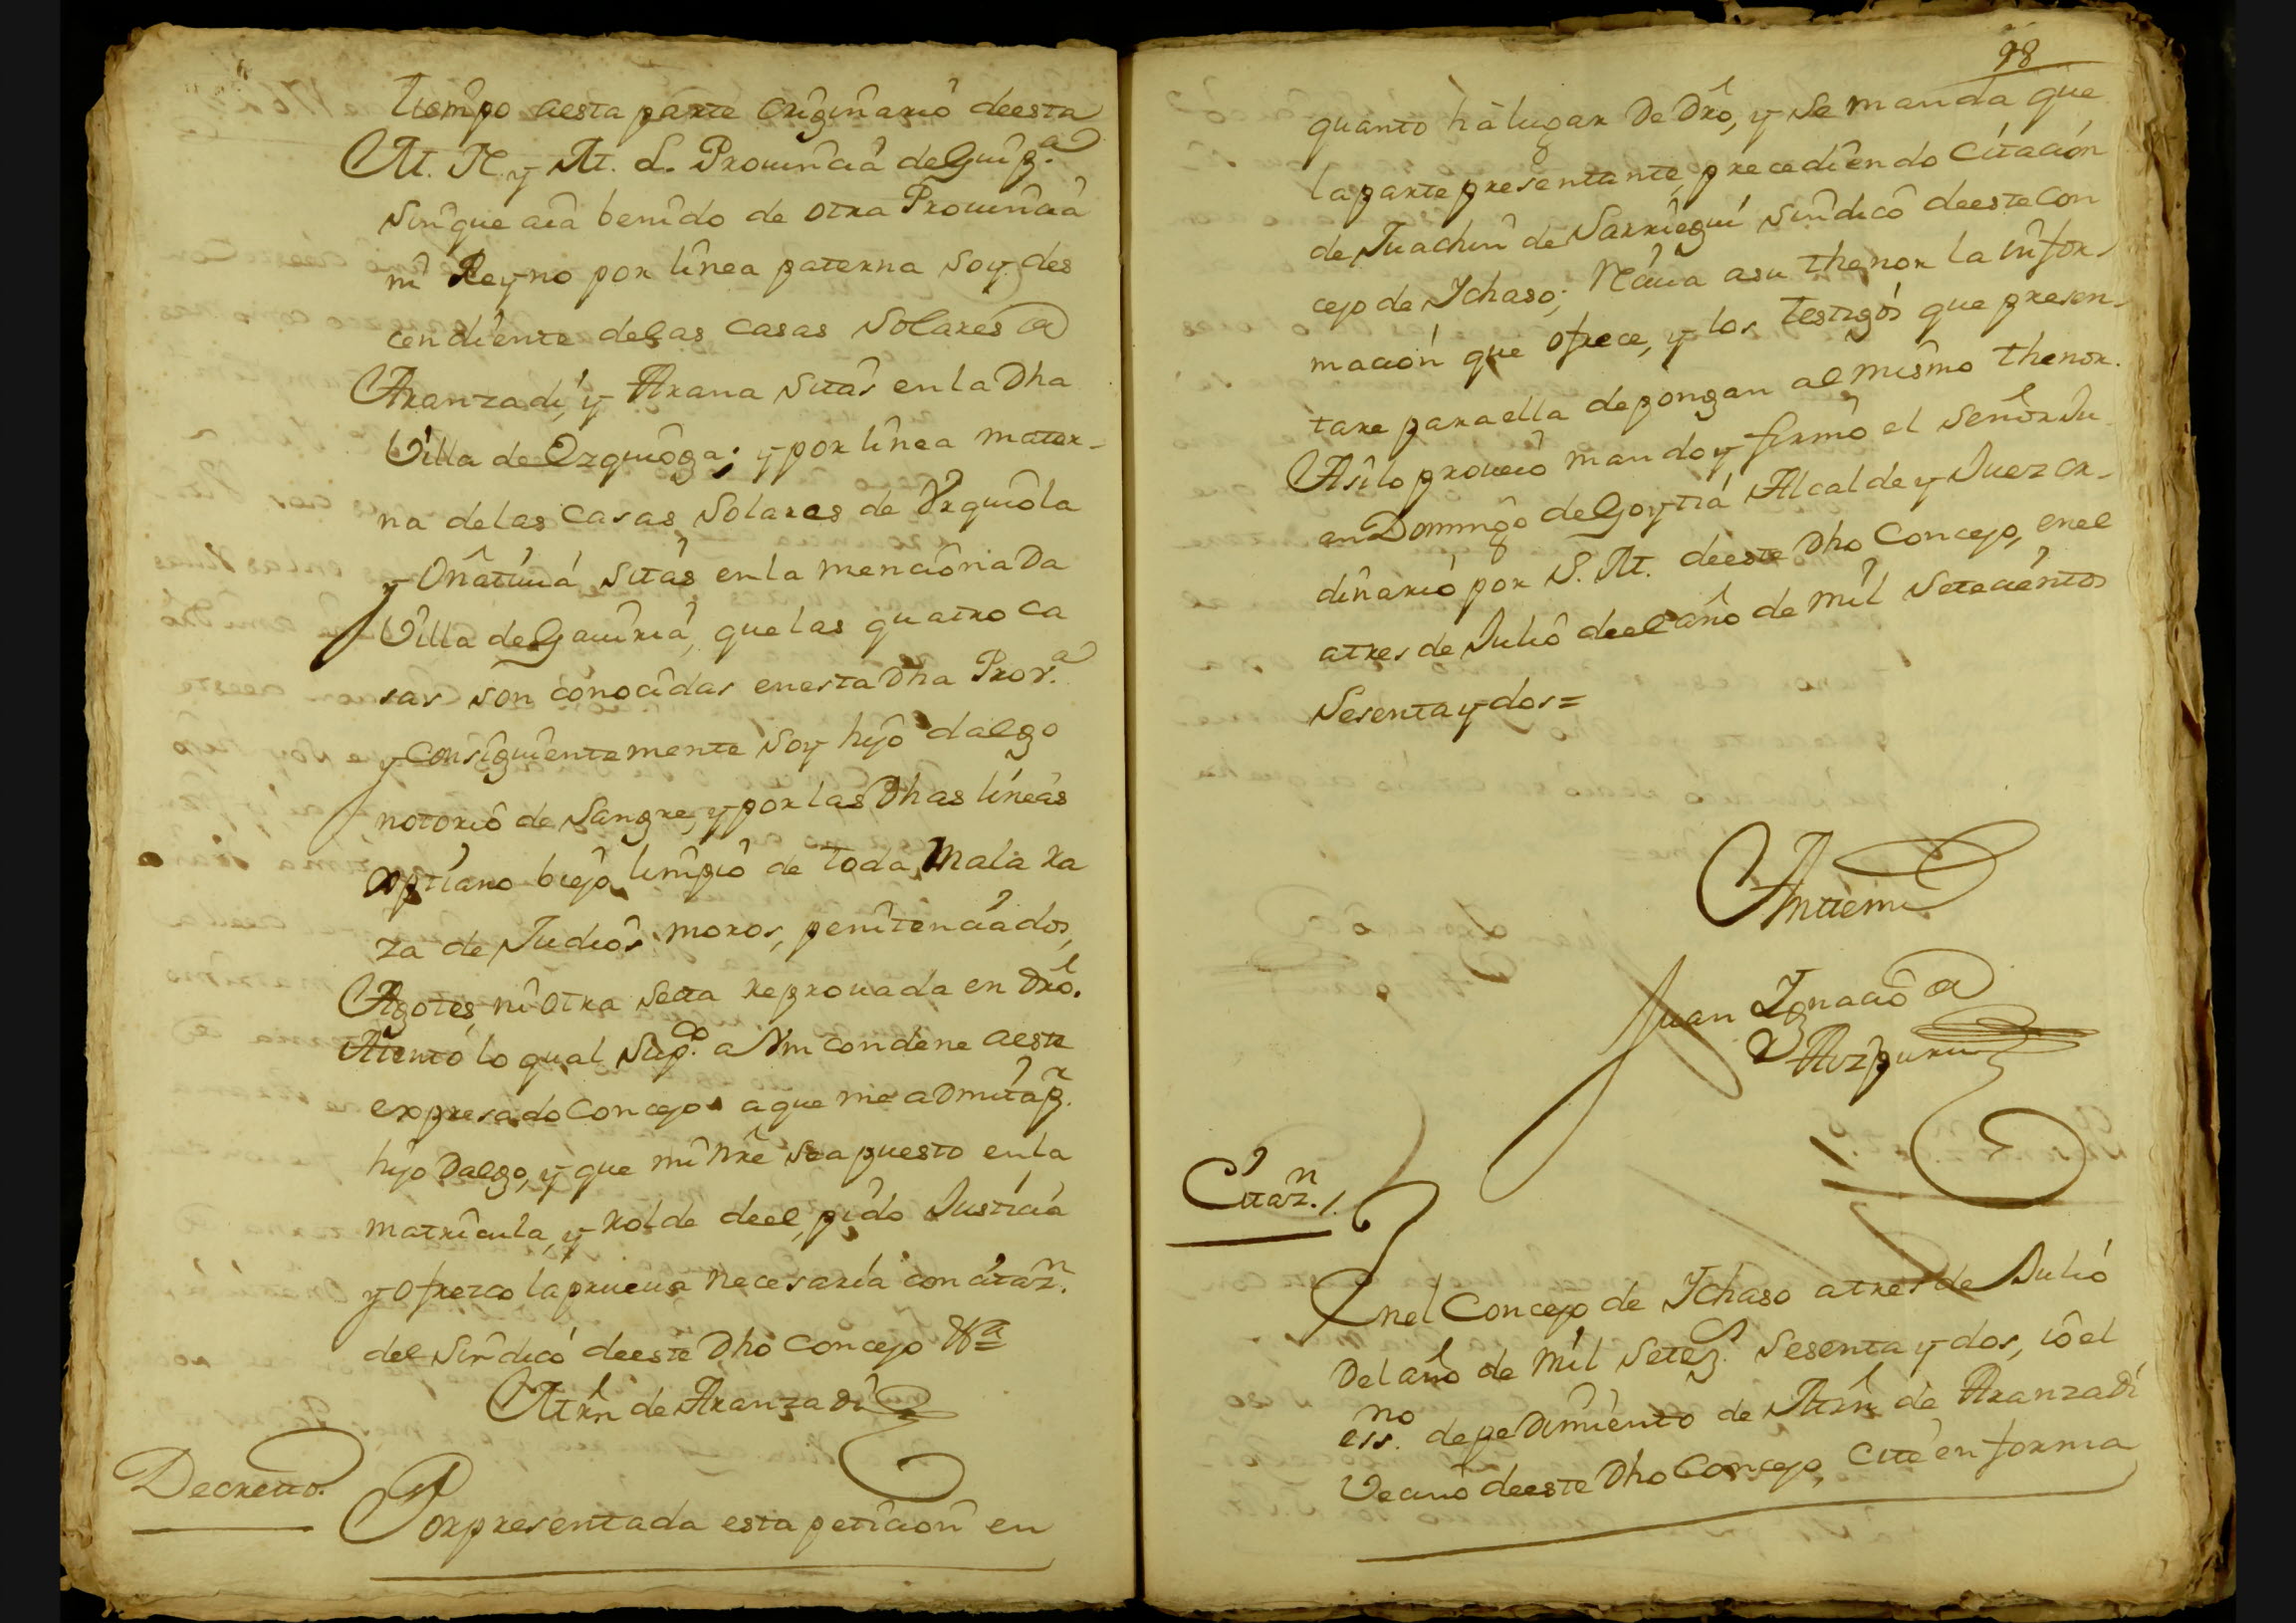 tiempo aesta parte originario deesta
M. N. y M. L. Prouincia deGuip.ª
sin que aia benido de otra Prouincia
ni Reyno por linea paterna soy des
cendiente delas casas Solares de
Aranzadi, y Arana sitas en la Dha
Villa de Ezquioga; y por linea mater-
na delas casas Solares de Vrquiola
y Oñatiuia sitas en la mencionaDa
Villa deGauiria, que las quatro ca
sas son conocidas en esta Dha Prov.ª
y consiguientemente soy hijo dalgo
notorio de Sangre, y por las Dhas lineas
xptiano biejo limpio de toda mala ra
za de Judios, moros, penitenciados,
Agotes, ni otra secta reprouada en Dro.
Atento lo qual Sup.co a Vm condene aeste
expresado Concejo a que me aDmita p.r
hijo Dalgo, y que mi nre sea puesto en la
matricula, y rolde deel, pido Justicia
y ofrezco la prueua necesaria con citaz.n
del Sindico deeste Dho Concejo &ª
Mrn de AranzaDi
Decreto.
Por presentada esta peticion en
98
quanto hà lugar De Dro, y se manda que
la parte presentante, precediendo Citacion
de Juachin de Sarriegui sindico deeste Con
cejo de Ychaso; Reciua a su thenor la infor-
macion que ofrece, y los testigos que presen-
tare para ella depongan al mismo thenor.
Asi lo proueio mando y firmò el Señor Ju
an Domingo deGoytia Alcalde y Juez or-
dinario por S. M. deeste Dho Concejo, en el
a tres de Julio deel año de mil setecientos
Sesenta y dos=
Antemi
Juan Ygnacio de
Aizpuru
Citaz.n /.
En el Concejo de Ychaso a tres de Julio
Del año de mil setez.s sesenta y dos, io el
ess.no de peDimiento de Mrn de AranzaDi
Vecino deeste Dho Concejo, cite en forma